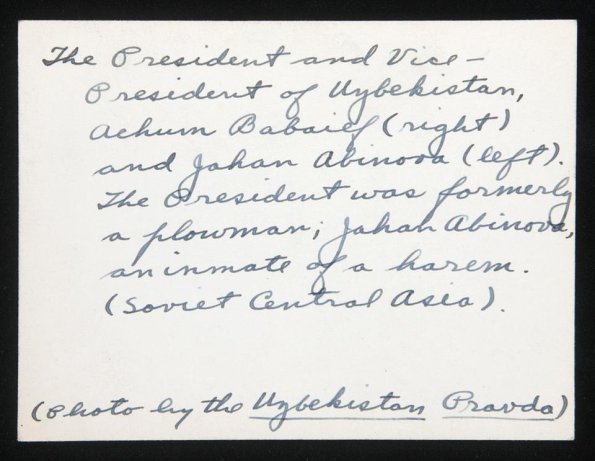 The President and Vice-
President of Uzbekistan,
Achum Babaief (right)
and Jahan Abinova (left).
The President was formerly
a plowman; Jahan Abinova,
an inmate of a harem.
(Soviet Central Asia).
(Photo by the Uzbekistan Pravda)